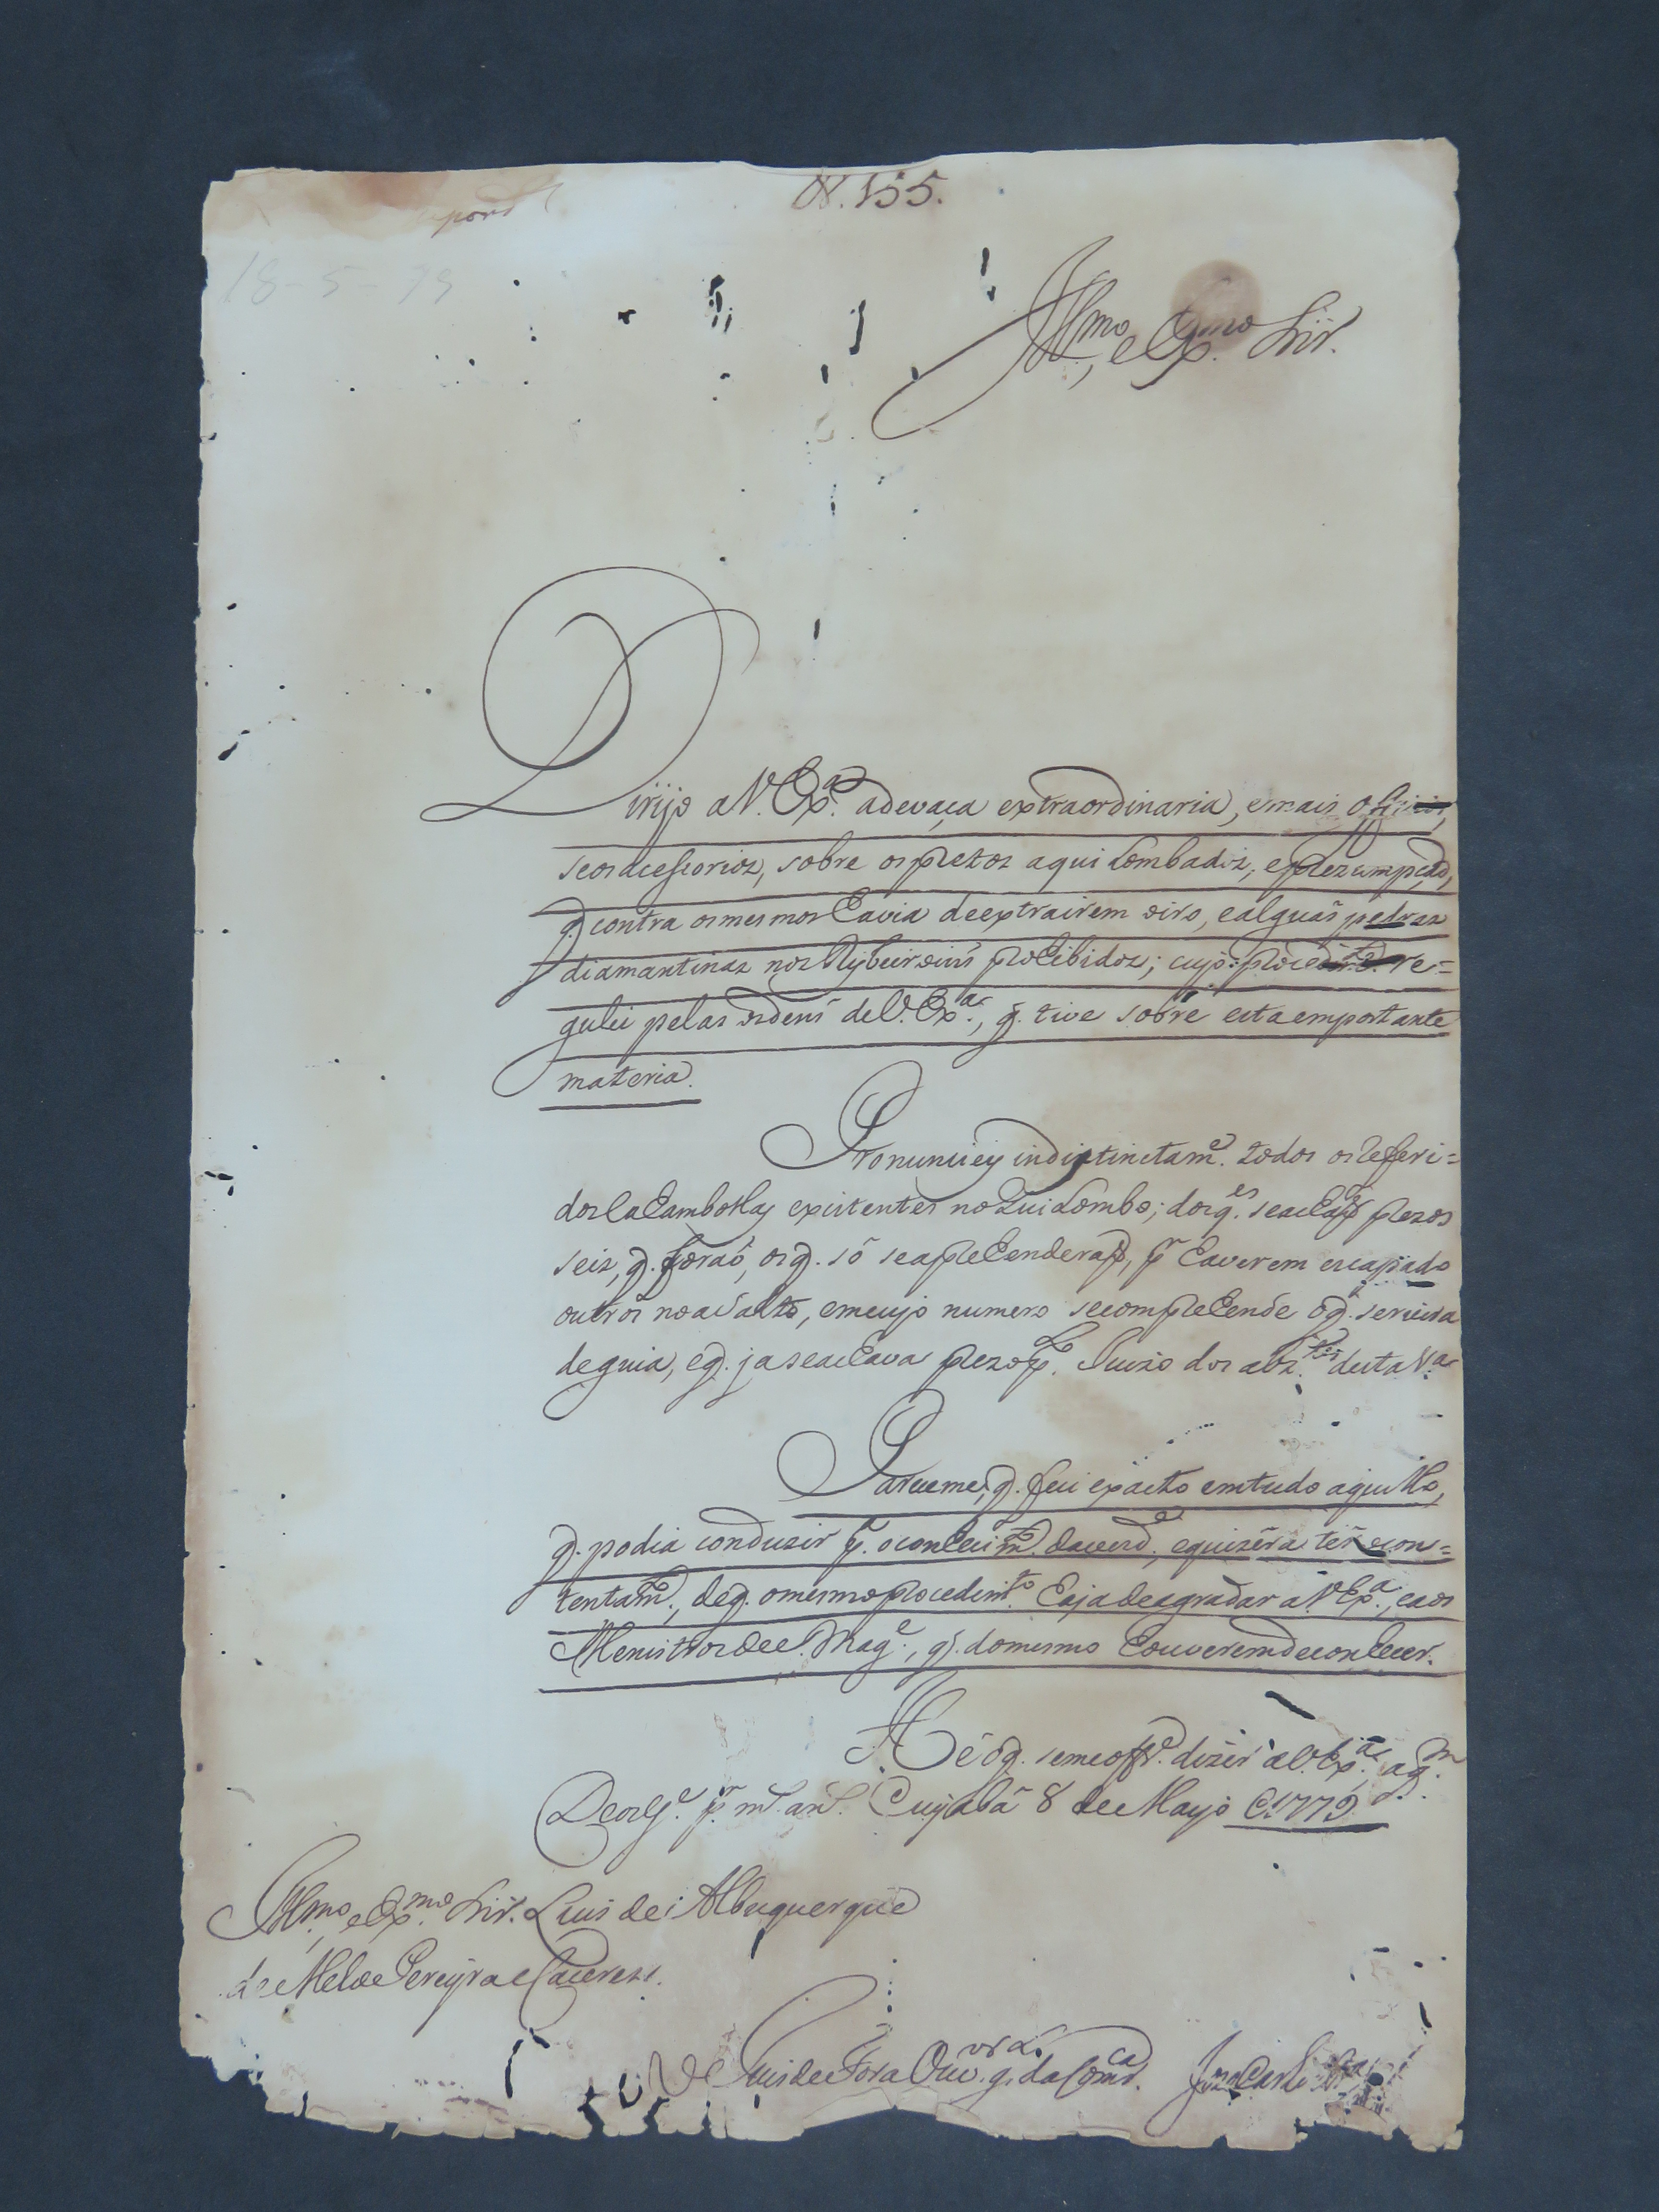 N. 155.
18-5-79
Illmo, e Exmo Snr.
Dirijo a V. Exa. adevaça extraordinaria, emais
seos acessorios, sobre os prezos aqui Lombados, e prezumpção,
q. contra os mesmos havia deextrairem oiro, ealguãs pedras
diamantinas nos Rybeiroins prohibidos; cujo procedimto. re=
gulei pelas ordens deV. Exa., q. tive sobre esta emportante
materia.
Pronunciey indistinctame. todos os referi=
dos Calhambollas existentes no Quilombo; dos q.es se achaõ prezos
seis, q. foraõ, os q. só seaprehenderaõ, pr haverem escapado
outros no asalto, emcujo numero secomprehende oq. servira
deguia, eq. ja seachava prezo po. Juizo dos abz.tes desta Va.
Pareceme, q. fui exacto emtudo aquillo,
q. podia conduzir pa. oconhecimto. daverde., equizera ter ocon=
tentamto., deq. omesmo procedimto. haja deagradar a V Exa., eaos
Menistros de S. Mage., q. domesmo houverem deconhecer.
He é oq. se me offe. dizer a V. Exa., aqm.
Deos Ge. pr ms. ans. Cuyabá 8 de Mayo de 1779
Illmo, e Exmo. Snr. Luis de Albuquerque
de Melo e Pereyra e Caceres.
Juis de Fora Ouvor. gl. da Comca.